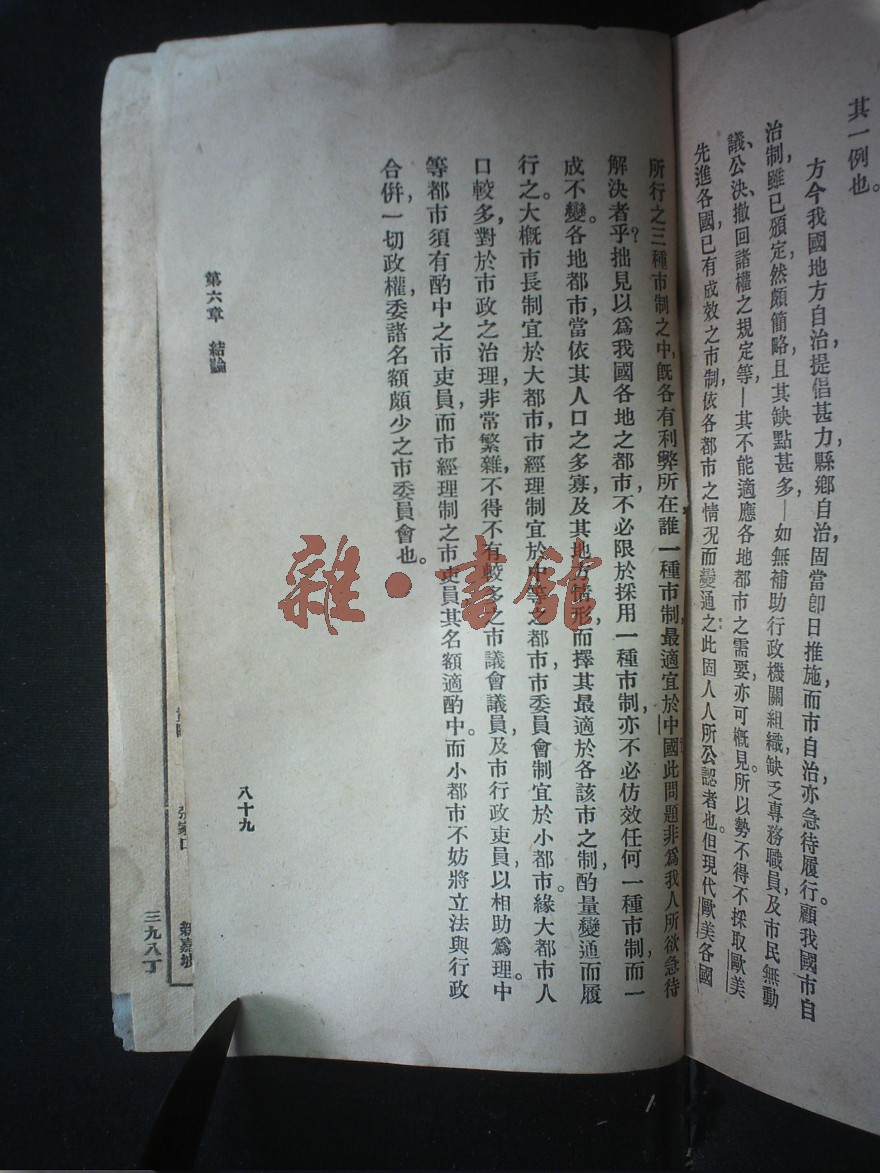 其一例也。
方今我國地方自治，提倡甚力，縣鄉自治，固當卽日推施，而市自治亦急待履行。顧我國市自
治制，雖已頒定，然頗簡略，且其缺點甚多—如無補助行政機關組織，缺乏專務職員，及市民無動
議、公決、撤回諸權之規定等—其不能適應各地都市之需要，亦可概見。所以勢不得不採取歐美
先進各國，已有成效之市制，依各都市之情況而變通之，此固人人所公認者也。但現代歐美各國
所行之三種市制之中，旣各有利弊所在，誰一種市制，最適宜於中國，此問題非爲我人所欲急待
解決者乎？拙見以爲我國各地之都市，不必限於採用一種市制，亦不必仿效任何一種市制，而一
成不變。各地都市當依其人口之多寡，及其地方情形，而擇其最適於各該市之制，酌量變通而履
行之。大概市長制宜於大都市，市經理制宜於中等之都市，市委員會制宜於小都市。緣大都市人
口較多，對於市政之治理，非常繁雜，不得不有較多之市議會議員，及市行政吏員，以相助爲理。中
等都市須有酌中之市吏員，而市經理制之市吏員，其名額適酌中。而小都市不妨將立法與行政
合併，一切政權，委諸名額頗少之市委員會也。
第六章 結論
八十九
張家口
新嘉坡
三九八丁
雜·書館